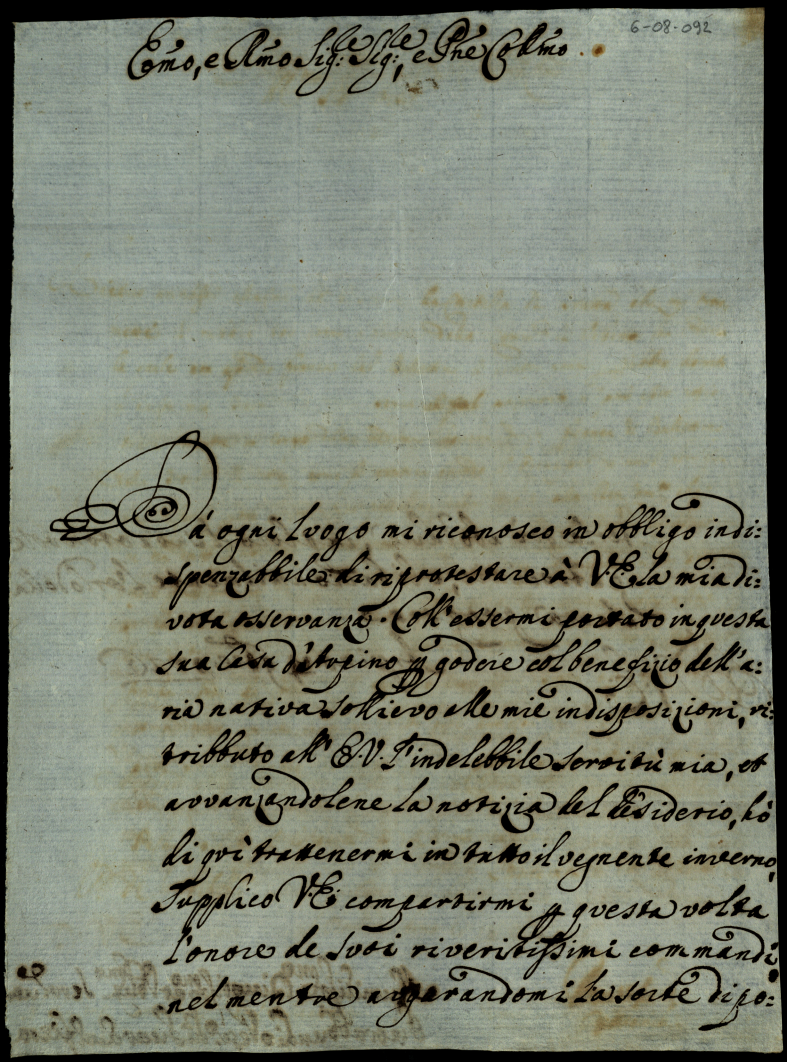 6-08-092
Emo, e Rmo Sig:re Sig:re, e Pne Collmo
Da ogni luogo mi riconosco in obbligo indi:
spenzabbile di riprotestare à V.E. la mia di:
vota osservanza. Coll'essermi portato in questa
sua Casa d'Arpino p godere col benefizio dell'a:
ria nativa sollievo alle mie indisposizioni, ri:
tributo all'E.V. l'indelebbile servitù mia, et
avvanzandolene la notizia del desiderio, hò
di quì trattenermi in tutto il vegnente inverno,
supplico V.E. compartirmi p questa volta
l'onore de suoi riveritissimi commandi
nel mentre augurandomi la sorte di po: